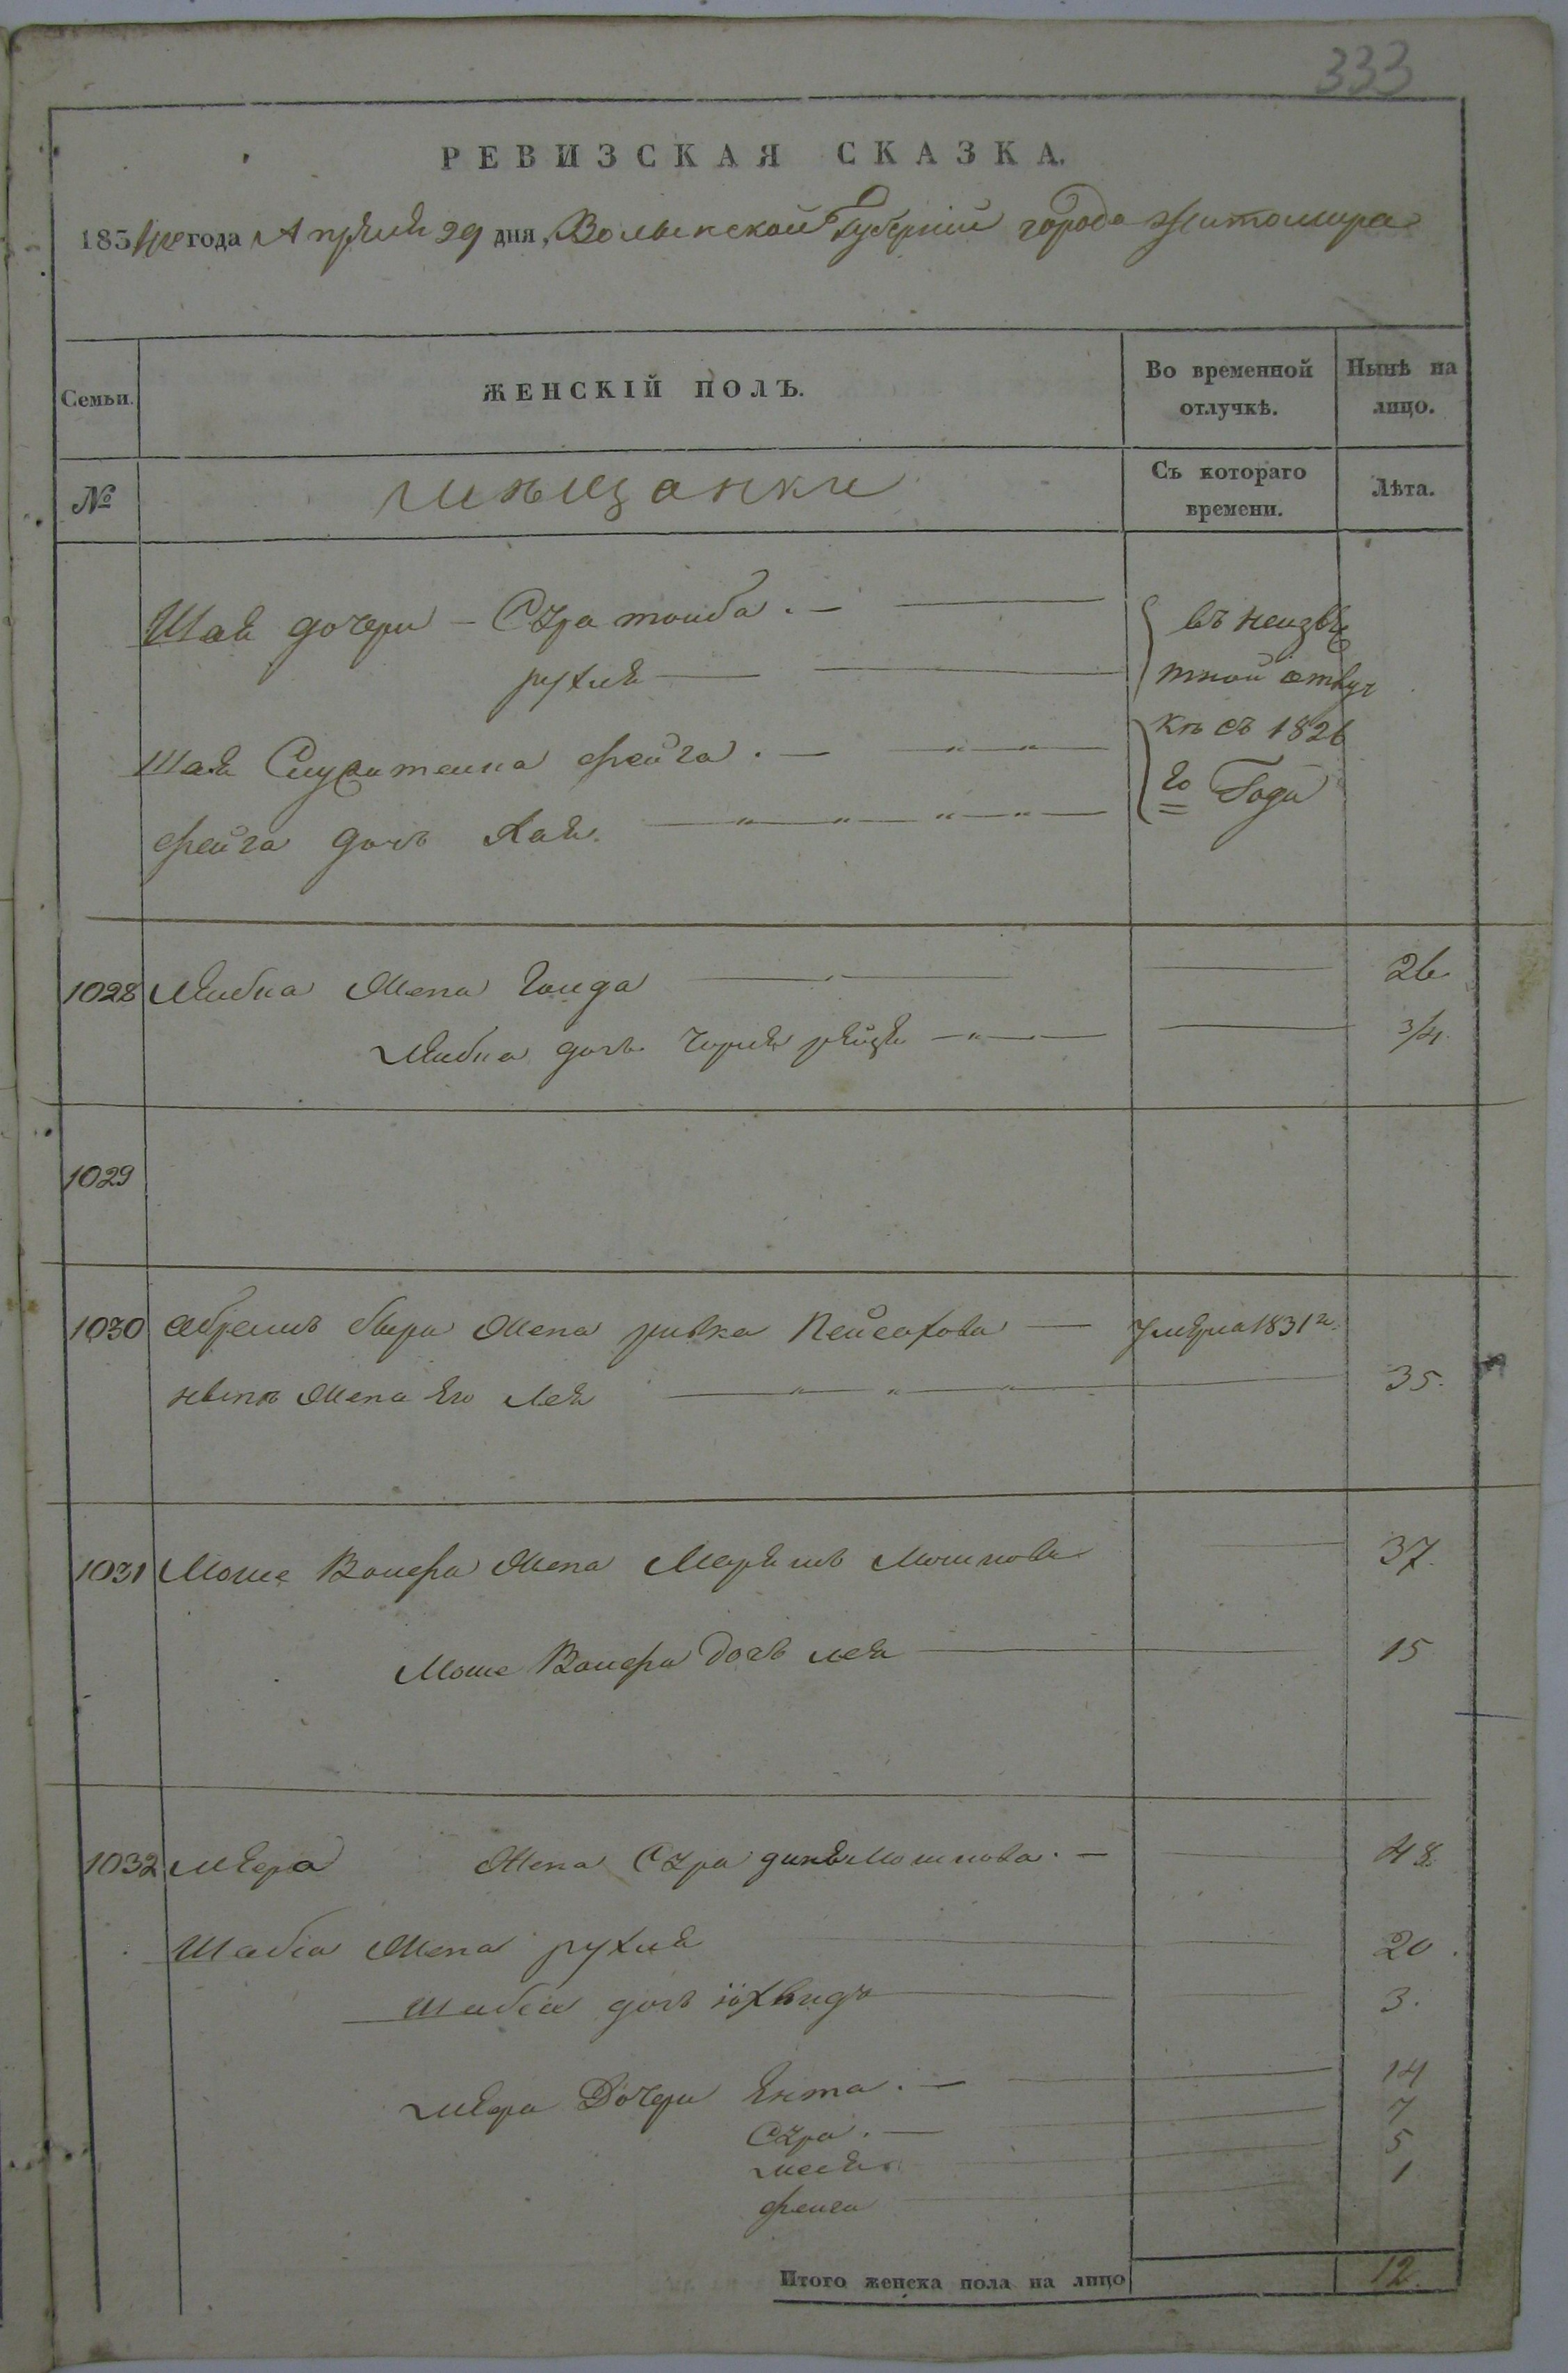 333
РЕВИЗСКАЯ СКАЗКА.
1834го года Апреля 29 дня, Волынской Губернии города Житомира
Семьи.
ЖЕНСКІЙ ПОЛЪ.
Во временной отлучкѣ.
Нынѣ на лицо.
№
мѣщанки
Съ котораго времени.
Лѣта.
Шаи дочери – Сура тоиба. —
рухля —
въ неизвѣс
тной отлуч
кѣ съ 1826
го Года
Шаи фейга. —
фейга дочь Хая.
1028 Лейбка Жена Голда — 26
Лейбка дочь рейзя — 3/4
1029
1030 Абрамъ Жена ривка Пейсахова — умерла 1831 г.
Жена Его Лея — 35.
1031 Моше Жена Марьямъ Мошкова — 37.
Моше дочь лея — 15
1032 Меера Жена Сура Мошкова. — 48
Шабса Жена рухля — 20.
Шабса дочь — 3.
Меера Дочери Ента. — 14
Сура. — 7
— 5
фейга — 1
Итого женска пола на лицо 12.